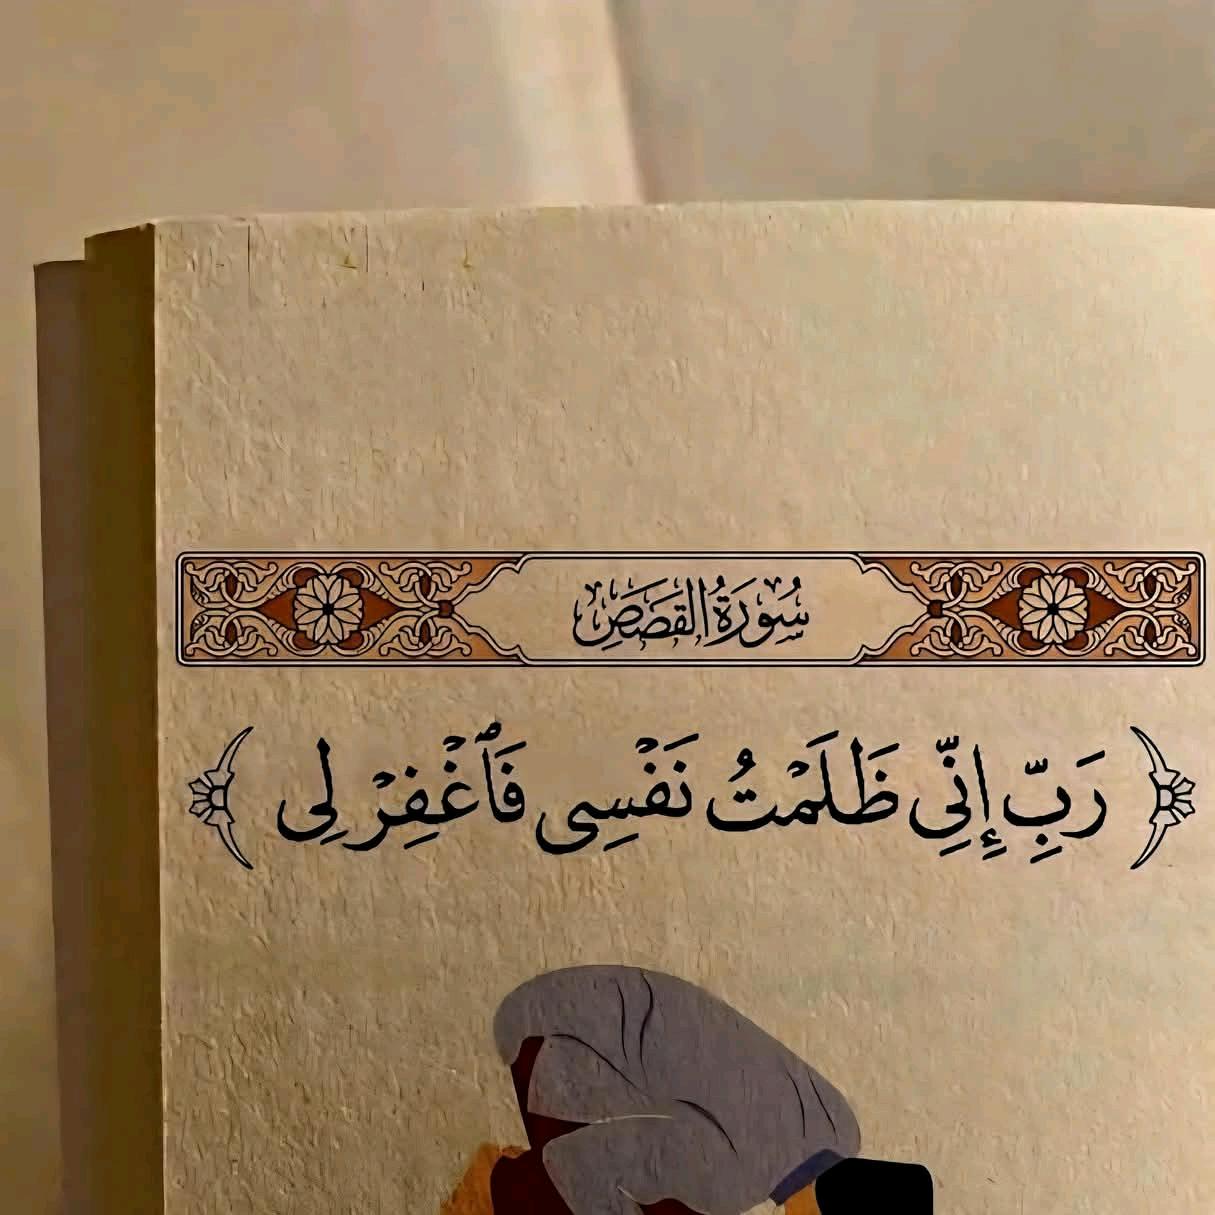 سُورَةُ القَصَصِ
﴿رَبِّ إِنِّي ظَلَمْتُ نَفْسِي فَٱغْفِرْ لِي﴾